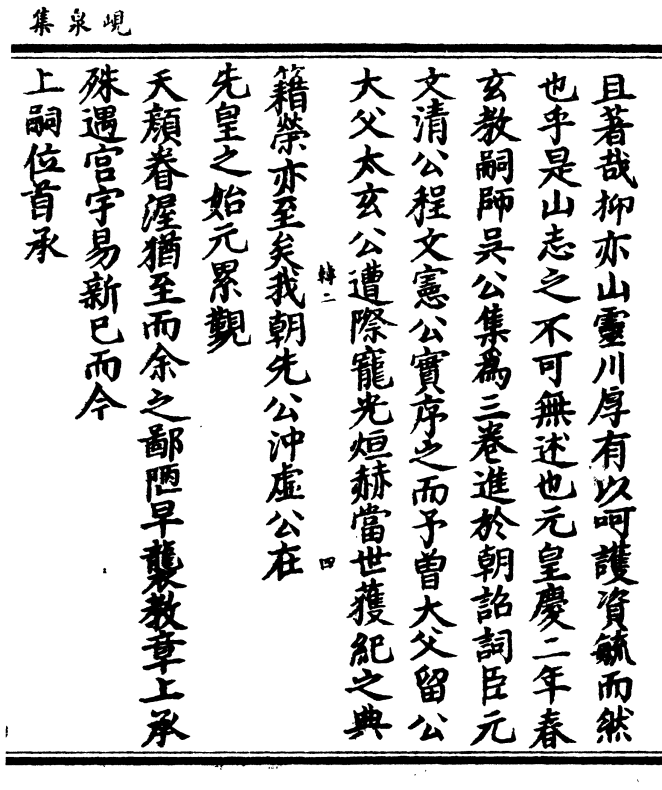 峴泉集
且著哉抑亦山靈川厚有以呵護資毓而然
也乎是山志之不可無述也元皇慶二年春
玄教嗣師吳公集爲三卷進於朝詔詞臣元
文清公程文憲公實序之而予曾大父留公
大父太玄公遭際寵光烜赫當世獲紀之典
韓二
四
籍榮亦至矣我朝先公沖虛公在
先皇之始元累覲
天顔眷渥猶至而余之鄙陋早襲教章上承
殊遇宫宇易新已而今
上嗣位首承